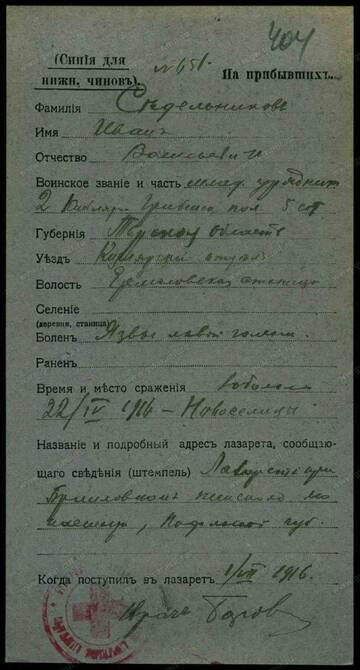 404
(Синія для
нижн. чиновъ).
№ 651.
На прибывшихъ.
Фамилія Седельниковъ
Имя Иванъ
Отчество Васильевич
Воинское званіе и часть млад. урядник
2 Кизляро Гребенск пол. 5 сот
Губернія Терская область
Уѣздъ Кизлярскій отдѣл
Волость Ермоловская станица
Селеніе
(деревня, станица)
Боленъ Язвы лѣвой голени
Раненъ
Время и мѣсто сраженія
22/IV 1916 – Новоселицы
Названіе и подробный адресъ лазарета, сообщаю-
щаго свѣдѣнія (штемпель) Лазаретъ при
женском мо
, Подольской губ.
Когда поступилъ въ лазаретъ 1/VII 1916.
Врачъ